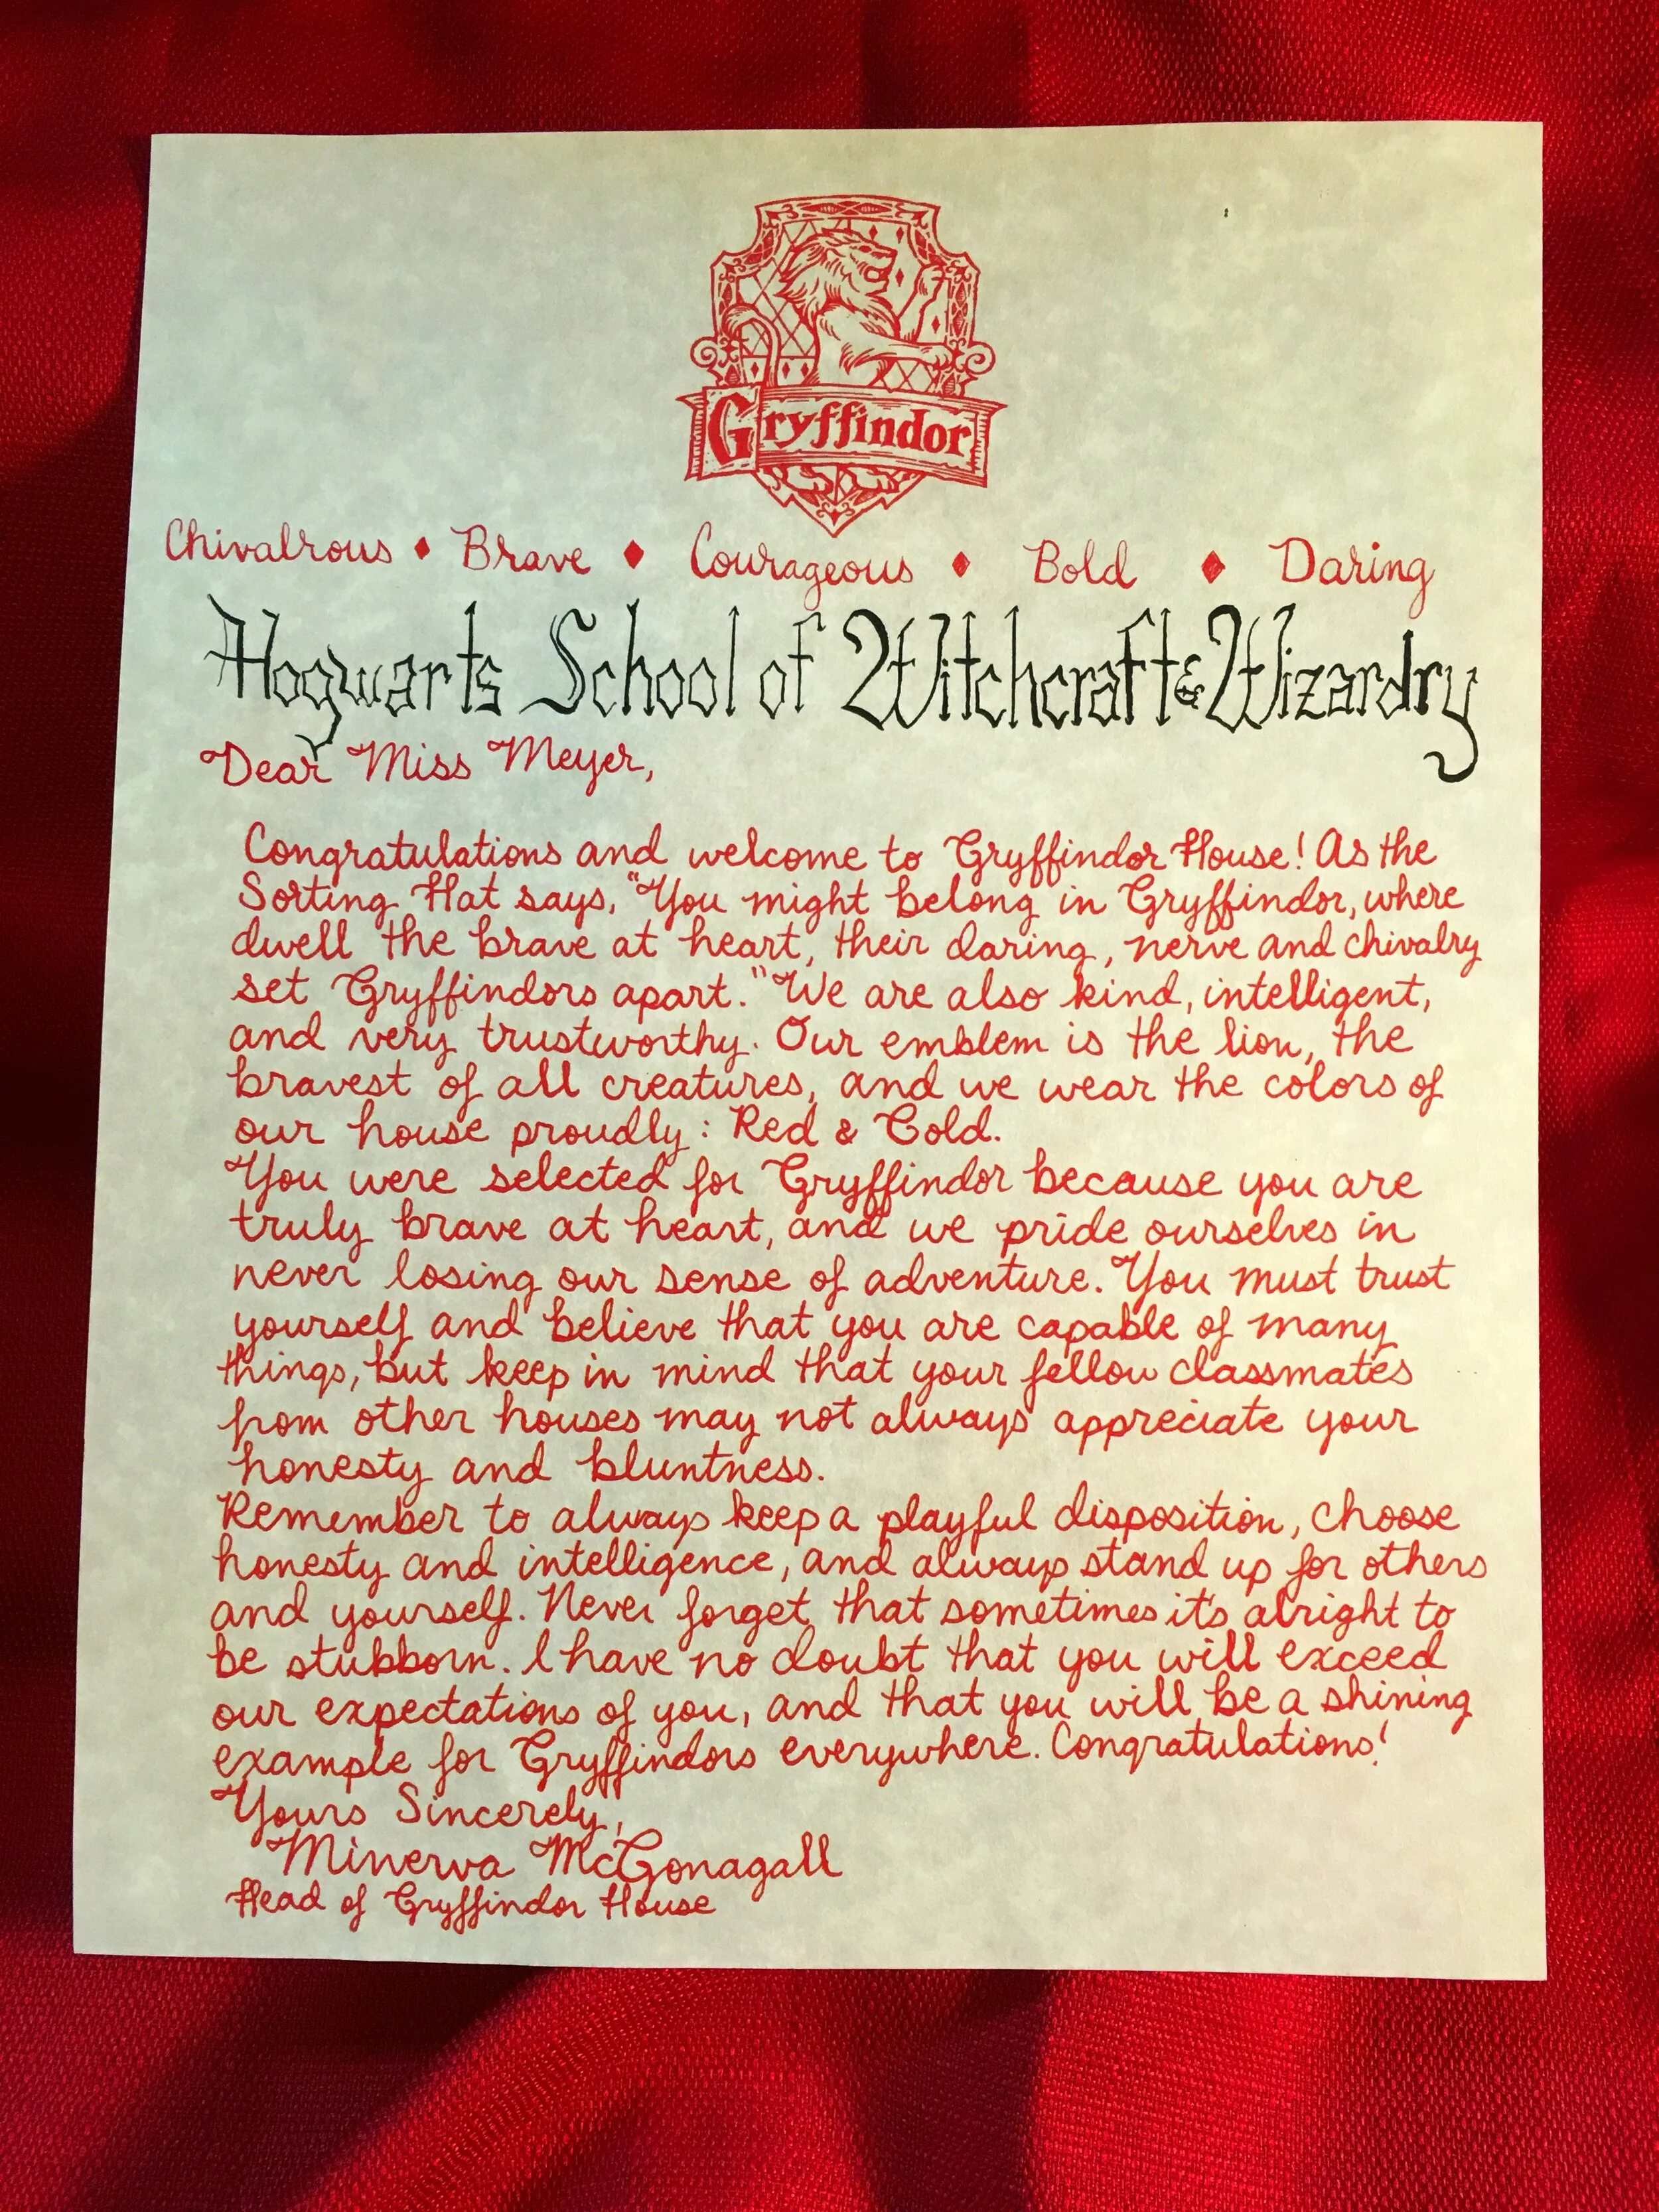 Gryffindor
Chivalrous ♦ Brave ♦ Courageous ♦ Bold ♦ Daring
Hogwarts School of Witchcraft & Wizardry
Dear Miss Meyer,
Congratulations and welcome to Gryffindor House! As the
Sorting Hat says, "You might belong in Gryffindor, where
dwell the brave at heart, their daring, nerve and chivalry
set Gryffindors apart." We are also kind, intelligent,
and very trustworthy. Our emblem is the lion, the
bravest of all creatures, and we wear the colors of
our house proudly: Red & Gold.
You were selected for Gryffindor because you are
truly brave at heart, and we pride ourselves in
never losing our sense of adventure. You must trust
yourself and believe that you are capable of many
things, but keep in mind that your fellow classmates
from other houses may not always appreciate your
honesty and bluntness.
Remember to always keep a playful disposition, choose
honesty and intelligence, and always stand up for others
and yourself. Never forget that sometimes it's alright to
be stubborn. I have no doubt that you will exceed
our expectations of you, and that you will be a shining
example for Gryffindors everywhere. Congratulations!
Yours Sincerely,
Minerva McGonagall
Head of Gryffindor House